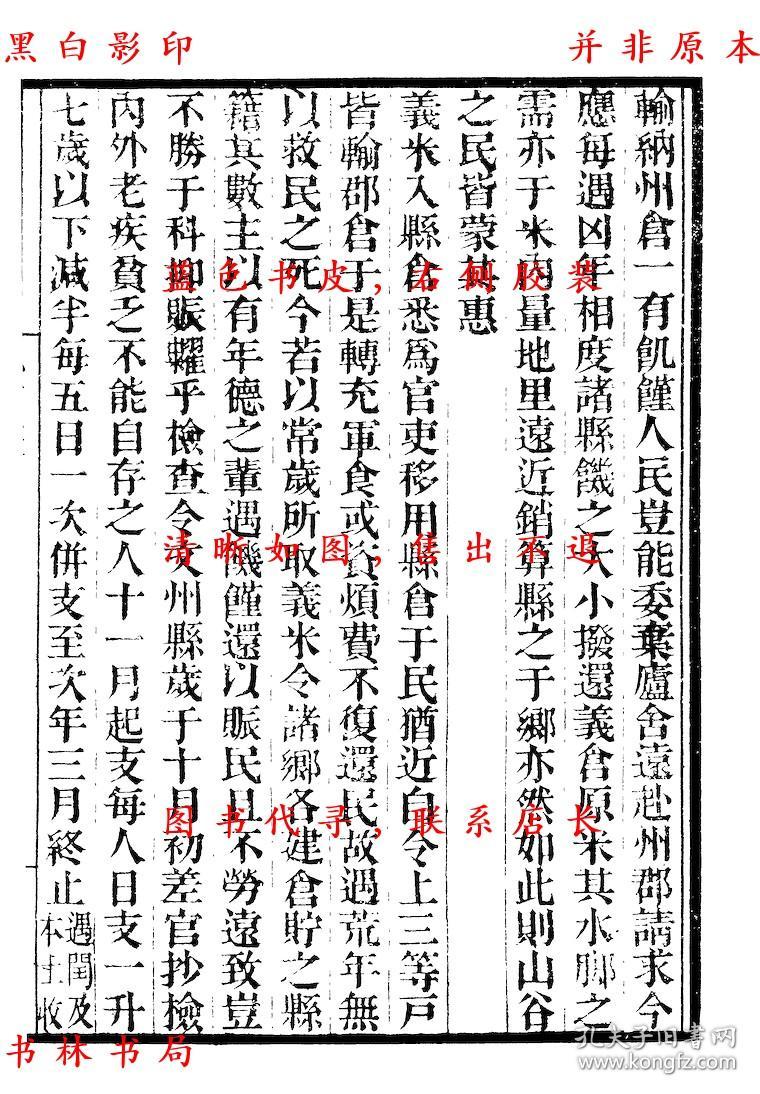 黑白影印
并非原本
輸納州倉一有飢饉人民豈能委棄廬舍遠赴州郡請求今
應每遇凶年相度諸縣饑之大小撥還義倉原米其水脚之
需亦于米內量地里遠近銷算縣之于鄉亦然如此則山谷
之民皆蒙其惠
義米入縣倉悉爲官吏移用縣倉于民猶近自今上三等戸
皆輸郡倉于是轉充軍食或資煩費不復還民故遇荒年無
以救民之死今若以常歲所取義米令諸鄉各建倉貯之縣
籍其數主以有年德之輩遇饑饉還以賑民且不勞遠致豈
不勝于科抑賑糶乎檢查令文州縣歲于十月初差官抄檢
內外老疾貧乏不能自存之人十一月起支每人日支一升
七歲以下減半每五日一次併支至次年三月終止遇閏及
本土收
蓝色书皮,右侧胶装
清晰如图,售出不退
图书代寻,联系店长
书林书局
孔夫子旧书网
www.kongfz.com